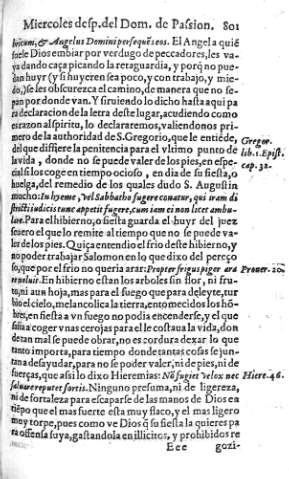 Miercoles desp. del Dom. de Passion. 801
bricum, & Angelus Domini persequẽs eos. El Angel a quiẽ
suele Dios embiar por verdugo de peccadores, les va-
ya dando caça picando la retaguardia, y porq̃ no pue-
dan huyr (y si huyeren sea poco, y con trabajo, y mie-
do,) se les obscurezca el camino, de manera que no se-
pan por donde van. Y siruiendo lo dicho hasta aqui pa
ra declaracion de la letra deste lugar, acudiendo como
es razon al spiritu, lo declararemos, valiendonos pri-
mero de la authoridad de S. Gregorio, que le entiẽde,
del que differe la penitencia para el vltimo punto de
la vida, donde no se puede valer de los pies, en espe-
cial si los coge en tiempo ocioso, en dia de fiesta, o
huelga, del remedio de los quales dudo S. Augustin
mucho: In hyeme, vel Sabbatho fugere conatur, qui tram di
stricti iudicis tunc appetit fugere, cum iam ei non licet ambu-
lare. Para el hibierno, o fiesta guarda el huyr del juez
seuero el que lo remite al tiempo que no se puede va-
ler de los pies. Quiça entendio el frio deste hibierno, y
no poder trabajar Salomon en lo que dixo del perço
so, que por el frio no queria arar: Propter frigus piger ara
re noluit. En hibierno estan los arboles sin flor, ni fru-
to, ni aun hoja, mas para el fuego que para deleyte, tur
bio el cielo, melancolica la tierra, entomecidos los hõ-
bres, en fiesta a vn fuego no podia encenderse, y el que
salia a coger vnas cerojas para el le costaua la vida, don
de tan mal se puede obrar, no es cordura dexar lo que
tanto importa, para tiempo donde tantas cosas se jun-
tan a desayudar, para no se poder valer, ni de pies, ni de
fuerças, que assi lo dixo Hieremias: Nõ fugiet velox nec
saluare reputet fortis. Ninguno presuma, ni de ligereza,
ni de fortaleza para escaparse de las manos de Dios en
tiẽpo que el mas fuerte esta muy flaco, y el mas ligero
muy torpe, pues como ve Dios q̃ su fiesta la quieres pa
ra offensa suya, gastandola en illicitos, y prohibidos re
Eee gozi-
Gregor.
lib. 1. Epist.
cap. 32.
Prouer. 20.
Hiere. 46.